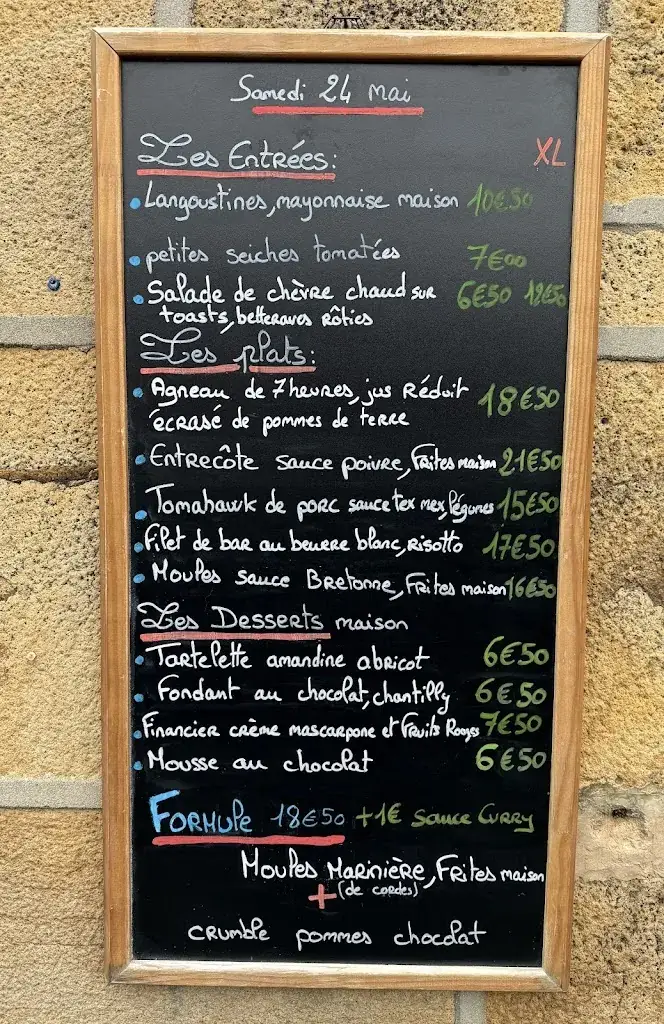 Samedi 24 Mai
Les Entrées: XL
Langoustines, mayonnaise maison 10€50
petites seiches tomatées 7€00
Salade de chèvre chaud sur 6€50 12€50
toasts, betteraves rôties
Les plats:
Agneau de 7 heures, jus Réduit 18€50
écrasé de pommes de terre
Entrecôte sauce poivre, Frites maison 21€50
Tomahawk de porc sauce tex mex, légumes 15€50
Filet de bar au beurre blanc, risotto 17€50
Moules sauce Bretonne, Frites maison 16€50
Les Desserts maison
Tartelette amandine abricot 6€50
Fondant au chocolat, chantilly 6€50
Financier crème mascarpone et Fruits Rouges 7€50
Mousse au chocolat 6€50
Formule 18€50 +1€ Sauce Curry
Moules Marinière, Frites maison
+ (de cordes)
crumble pommes chocolat